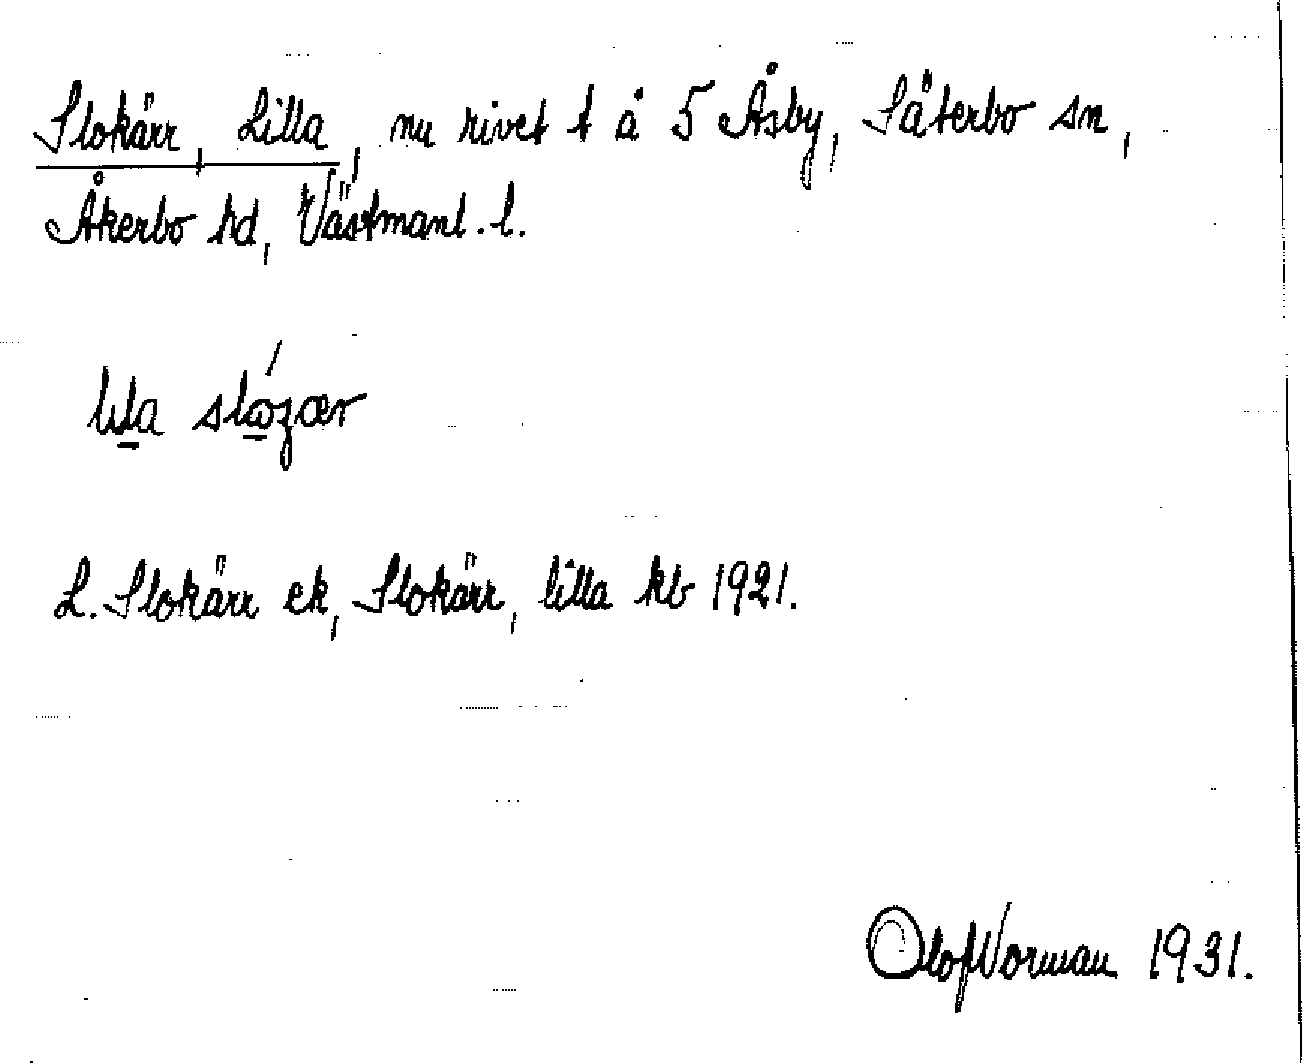 Slokärr, Lilla, nu rivet t å 5 Åsby, Säterbo sn,
Åkerbo hd, Västmanl. l.
lɩla slózær
L. Slokärr ek, Slokärr, lilla kb 1921.
Olof Norman 1931.